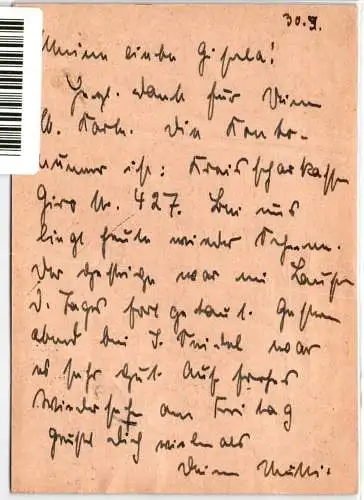 30. I.
Meine liebe Gisela!
Herzl. Dank für Deine
lb. Karte. Die Konto-
nummer ist: Kreissparkasse
Giro Nr. 427. Bei uns
liegt heute wieder Schnee.
Der gestrige war im Laufe
d. Tages fortgetaut. Gestern
abend bei J. Seidel war
es sehr gut. Auf frohes
Wiedersehn am Freitag
grüßt Dich vielmals
Deine Mutti.